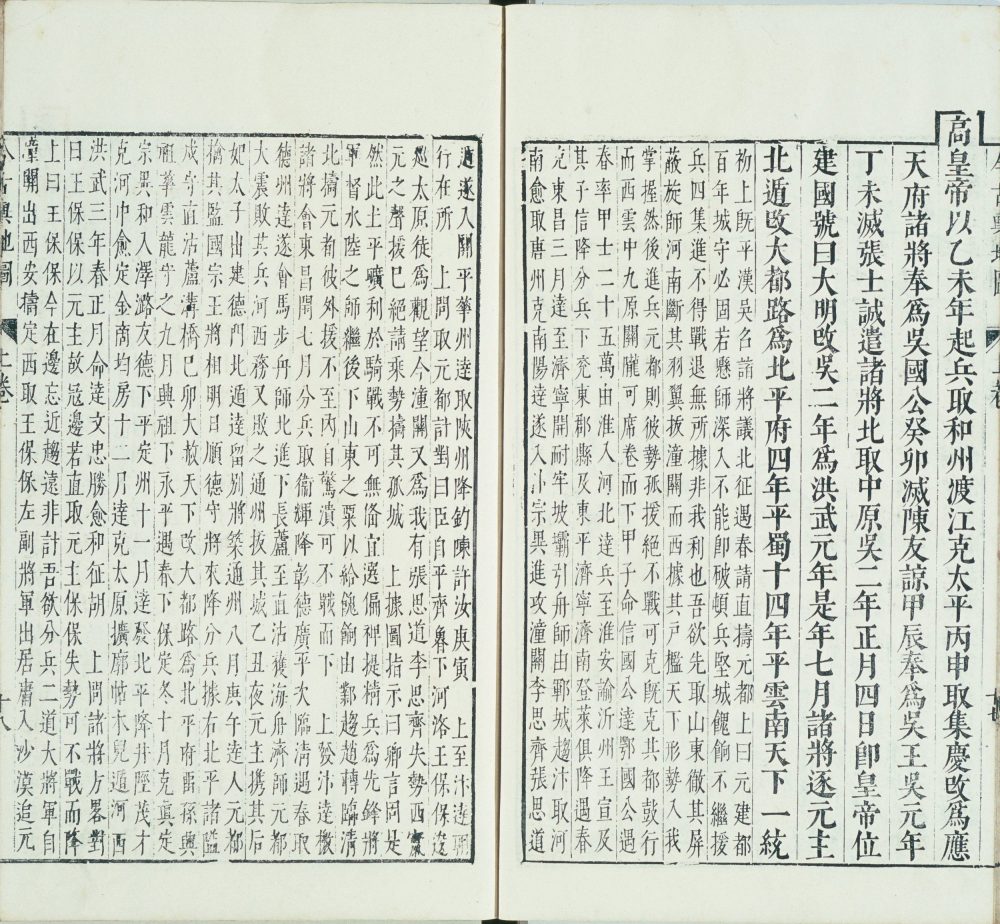 高皇帝以乙未年起兵取和州渡江克太平丙申取集慶改爲應
天府諸將奉爲吳國公癸卯滅陳友諒甲辰奉爲吳王吳元年
丁未滅張士誠遣諸將北取中原吳二年正月四日卽皇帝位
建國號曰大明改吳二年爲洪武元年是年七月諸將逐元主
北遁改大都路爲北平府四年平蜀十四年平雲南天下一統
初上旣平漢吳召諸將議北征遇春請直擣元都上曰元建都
百年城守必固若懸師深入不能卽破頓兵堅城餽餉不繼援
兵四集進不得戰退無所據非我利也吾欲先取山東徹其屏
蔽旋師河南斷其羽翼拔潼關而西據其戶檻天下形勢入我
掌握然後進兵元都則彼勢孤援絕不戰可克旣克其都鼓行
而西雲中九原關隴可席卷而下甲子命信國公達鄂國公遇
春率甲士二十五萬由淮入河北達兵至淮安諭沂州王宣及
其子信降分兵下兖東郡縣及東平濟寧濟南登萊俱降遇春
克東昌三月達至濟寧開耐牢坡壩引舟師由鄆城趨汴取河
南愈取唐州克南陽達遂入汴宗異進攻潼關李思齊張思道
遁遂入關平華州達取陝州降鈞陳許汝庚寅 上至汴達朝
行在所 上問取元都計對曰臣自平齊魯下河洛王保保逡
廵太原徒爲觀望今潼關又爲我有張思道李思齊失勢西竄
元之聲援已絕請乘勢擣其孤城 上據圖指示曰卿言固是
然此土平曠利於騎戰不可無俻宜選偏裨提精兵爲先鋒將
軍督水陸之師繼後下山東之粟以給餽餉由鄴趨趙轉臨清
北擣元都彼外援不至內自驚潰可不戰而下 上發汴達檄
諸將會東昌閏七月分兵取衛輝彰德廣平次臨清遇春取
德州達遂會馬步舟師北進下長蘆至直沽獲海舟濟師元都
大震敗其兵河西務又敗之通州拔其城乙丑夜元主携其后
妃太子出建德門北遁達留别將築通州八月庚午達入元都
擒其監國宗王將相明日順德守將來降分兵據古北平諸隘
戍守直沽蘆溝橋巳卯大赦天下改大都路爲北平府雷孫興
祖華雲龍守之九月興祖下永平遇春下保定冬十月克真定
宗異和入澤潞友德下平定州十一月達發北平降井陘茂才
克河中愈定金商均房十二月達克太原擴廓帖木兒遁河西
洪武三年春正月命達文忠勝愈和征胡 上問諸將方畧對
曰王保保以元主故冦邊若直取元主保保失勢可不戰而降
上曰王保保今在邊忘近趨遠非計吾欲分兵二道大將軍自
潼關出西安擣定西取王保保左副將軍出居庸入沙漠追元
今古輿地圖
上卷
十八